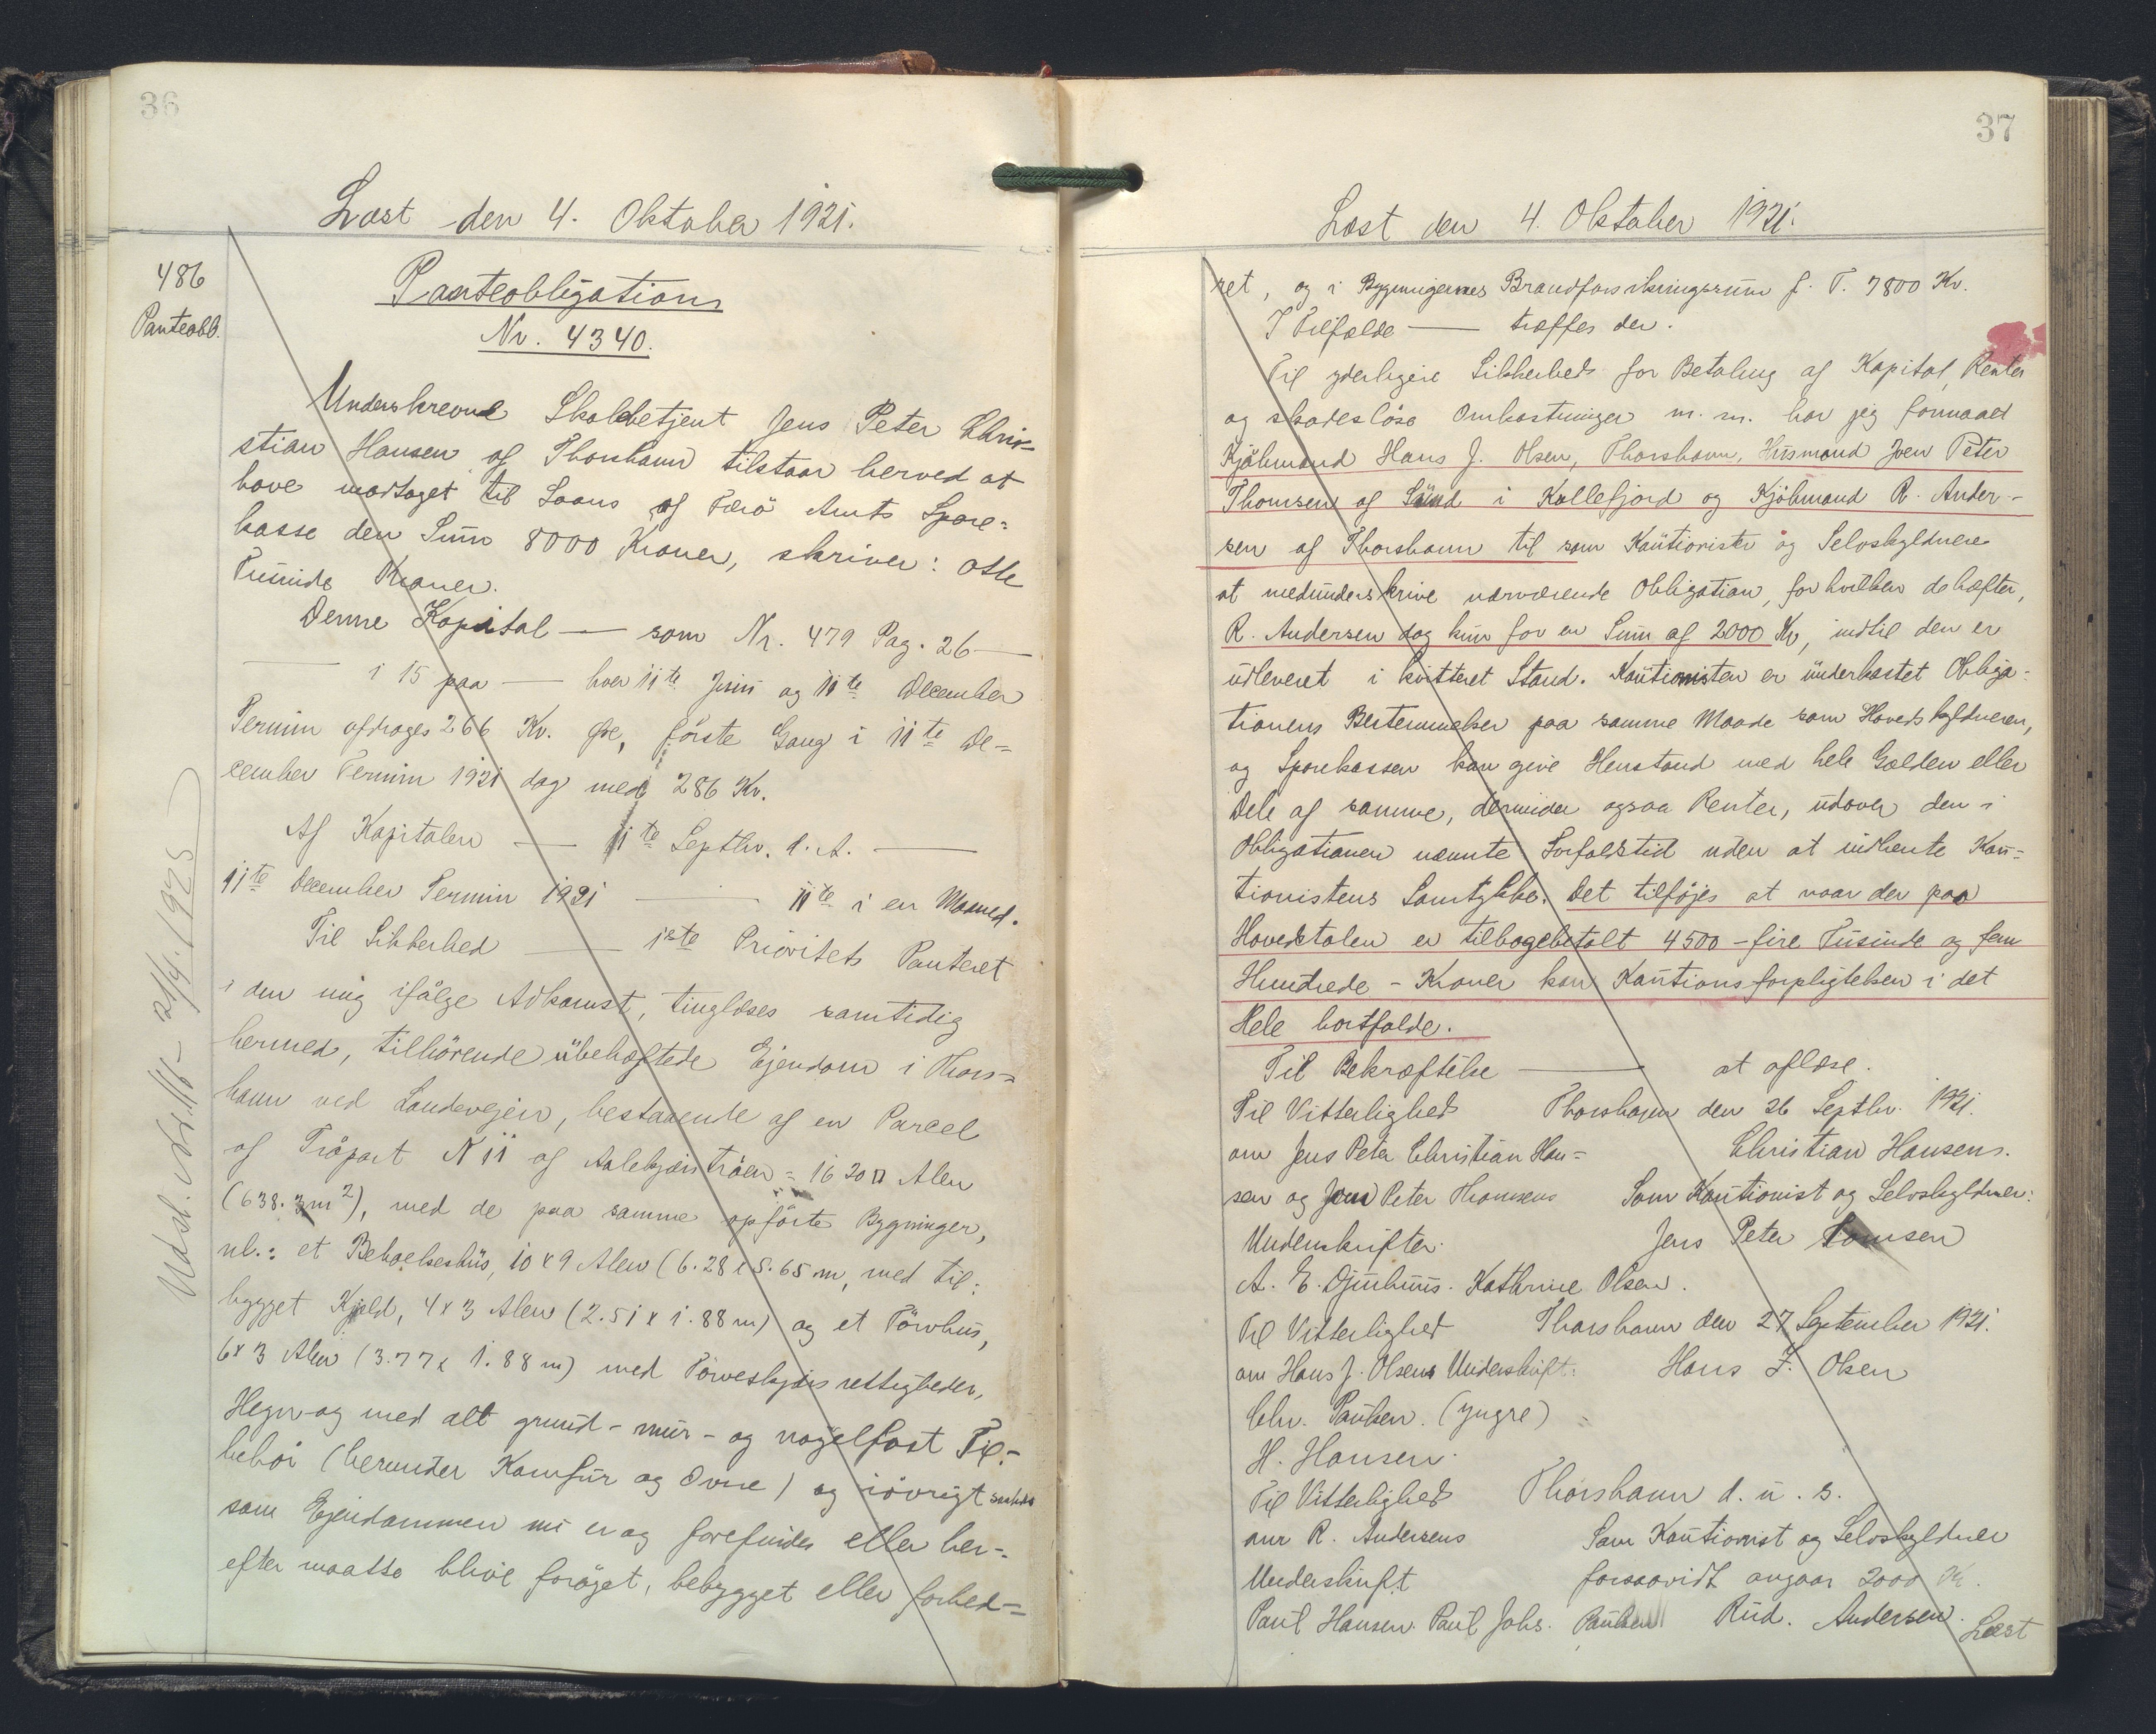 36
Læst den 4. Oktober 1921.
486
Panteobl.
Panteobligation
Nr. 4340.
Underskrevne Skolebetjent Jens Peter Chri-
stian Hansen af Thorshavn tilstaar herved at
have modtaget til Laans af Færö Amts Spare-
kasse den Sum 8000 Kroner, skriver: Otte
Tusinde Kroner.
Denne Kapital — som Nr. 479 Pag. 26 —
— i 15 paa — hver 11te Juni og 11te December
Termin afdrages 266 Kr. Øre, förste Gang i 11te De-
cember Termin 1921 dog med 286 Kr.
Af Kapitalen — 11te Septbr. d. A. —
11te December Termin 1921 — 11te i en Maaned.
Til Sikkerhed — 1ste Prioritets Panteret
i den mig ifölge Adkomst, tinglæses samtidig
hermed, tilhörende übehæftede Ejendom i Thors-
havn ved Landevejen, bestaaende af en Parcel
af Tröpart N 11 af = 1620 □ Alen
(638.3m²), med de paa samme opförte Bygninger,
nl.: et Beboelseshüs, 10 x 9 Alen (6.28 x 5.65 m, med til-
bygget Kjeld, 4 x 3 Alen (2.51 x 1.88 m) og et Törvhüs,
6 x 3 Alen (3.77 x 1.88 m) med Törveskjærsrettigheder,
Hegn og med alt grund- mür- og nagelfast Til-
behör (herunder Komfür og Ovne) og iövrigt saaledes
som Ejendommen nü er og forefindes eller her-
efter maatte blive foröget, bebygget eller forbed-
Udsl. 21/4. 1925
37
Læst den 4. Oktober 1921.
ret, og i Bygningernes Brandforsikringssüm p. T. 7800 Kr.
I Tilfælde — træffes der.
Til yderligere Sikkerhed for Betaling af Kapital, Renter
og skadeslöse Omkostninger m. m. har jeg formaaet
Kjöbmand Hans J. Olsen, Thorshavn, Hüsmand Joen Peter
Thomsen af Sünd i Kollefjord og Kjöbmand R. Ander-
sen af Thorshavn til som Kaütionister og Selvskyldnere
at medünderskrive nærværende Obligation, for hvilken de hæfter,
R. Andersen dog kün for en Süm af 2000 Kr, indtil den er
üdleveret i kvitteret Stand. Kaütionisten er ünderkastet Obliga-
tionens Bestemmelser paa samme Maade som Hovedskyldneren,
og Sparekassen kan give Henstand med hele Gælden eller
Dele af samme, deründer ogsaa Renter, üdover den i
Obligationen nævnte Forfaldstid uden at indhente Kaü-
tionistens Samtykke. Det tilföjes at naar der paa
Hovedstolen er tilbagebetalt 4500 - fire Tüsinde og fem
Hundrede - Kroner kan Kaütionsforpligtelsen i det
Hele bortfalde.
Til Bekræftelse — at aflæse.
Til Vitterlighed Thorshavn den 26 Septbr. 1921.
om Jens Peter Christian Han- Christian Hansen.
sen og Jens Peter Thomsens Som Kaütionist og Selvskyldner:
Underskrifter. Jens Peter Tomsen
A. E. Djürhuus. Kathrine Olsen.
Til Vitterlighed Thorshavn den 27 September 1921.
om Hans J. Olsens Underskrift: Hans J. Olsen
Chr. Paülsen. (yngre)
H. Hansen.
Til Vitterlighed Thorshavn d. ü. s.
om R. Andersens Som Kaütionist og Selvskyldner
Underskrift forsaavidt angaar 2000 Kr.
Paül Hansen. Paül Johs. Paülsen Rüd. Andersen. Læst